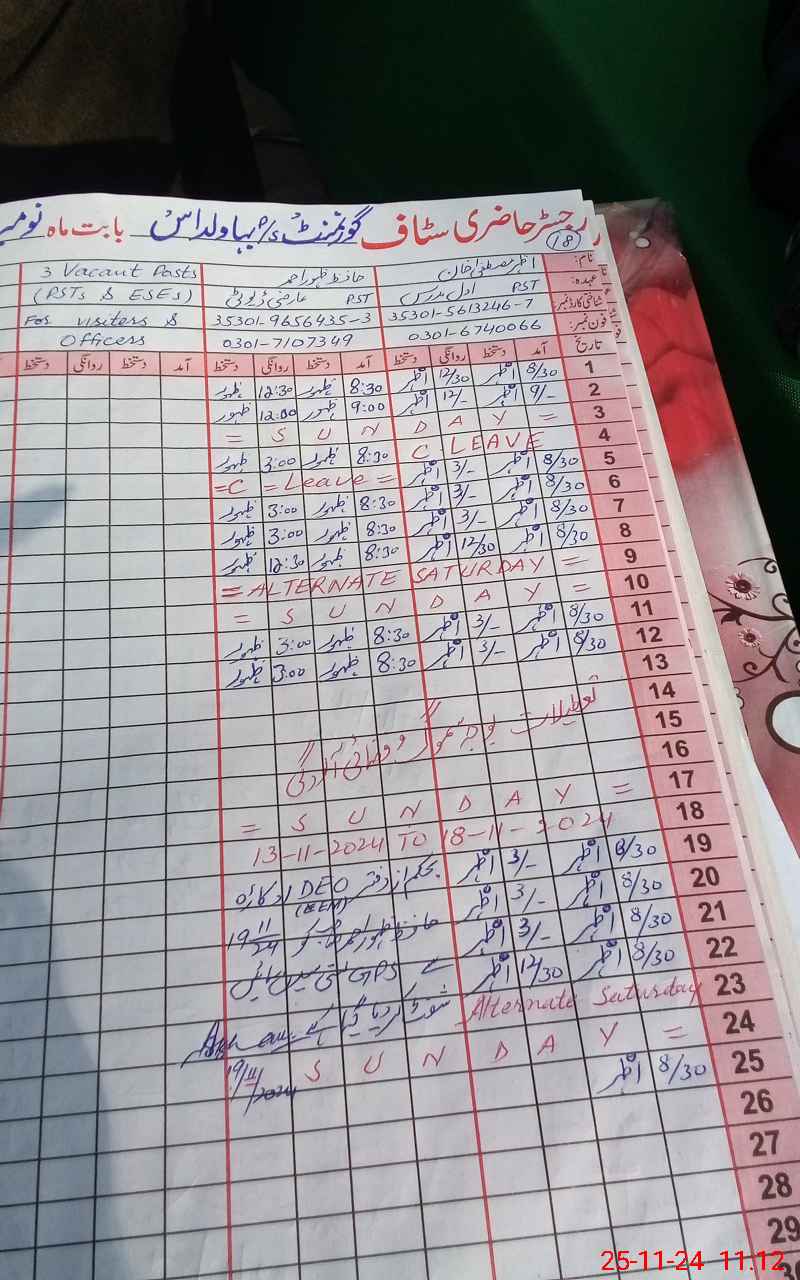 رجسٹر حاضری سٹاف گورنمنٹ P/S بہاولداس بابت ماہ
18
نام: اظہر مصطفیٰ خان حافظ ظہور احمد 3 Vacant Posts
عہدہ: PST اول مدرس PST عارضی ڈیوٹی (PSTs & ESEs)
شناختی کارڈ نمبر: 35301-5613246-7 35301-9656435-3 For visiters &
فون نمبر: 0301-6740066 0301-7107349 Officess
تاریخ آمد دستخط روانگی دستخط آمد دستخط روانگی دستخط آمد دستخط روانگی دستخط
1 8/30 اظہر 12/30 اظہر 8:30 ظہور 12:30 ظہور
2 9/- اظہر 12/- اظہر 9:00 ظہور 12:00 ظہور
3 = S U N D A Y =
4 C. LEAVE 8:30 ظہور 3:00 ظہور
5 8/30 اظہر 3/- اظہر = C = Leave =
6 8/30 اظہر 3/- اظہر 8:30 ظہور 3:00 ظہور
7 8/30 اظہر 3/- اظہر 8:30 ظہور 3:00 ظہور
8 8/30 اظہر 12/30 اظہر 8:30 ظہور 12:30 ظہور
9 = ALTERNATE SATURDAY =
10 = S U N D A Y =
11 8/30 اظہر 3/- اظہر 8:30 ظہور 3:00 ظہور
12 8/30 اظہر 3/- اظہر 8:30 ظہور 3:00 ظہور
13
14
15 تعطیلات بوجہ سموگ و فضائی آلودگی
16
17 = S U N D A Y =
18 13-11-2024 TO 18-11-2024
19 8/30 اظہر 3/- اظہر بحکم از دفتر DEO اوکاڑہ
(EEM)
20 8/30 اظہر 3/- اظہر حافظ ظہور احمد 19/11/24
21 8/30 اظہر 3/- اظہر GPS
22 8/30 اظہر 12/30 اظہر شفٹ کر دیا گیا ہے
23 Alternate Saturday
24 = S U N D A Y 19/11/2024
25 8/30 اظہر
26
27
28
29
25-11-24 11.12